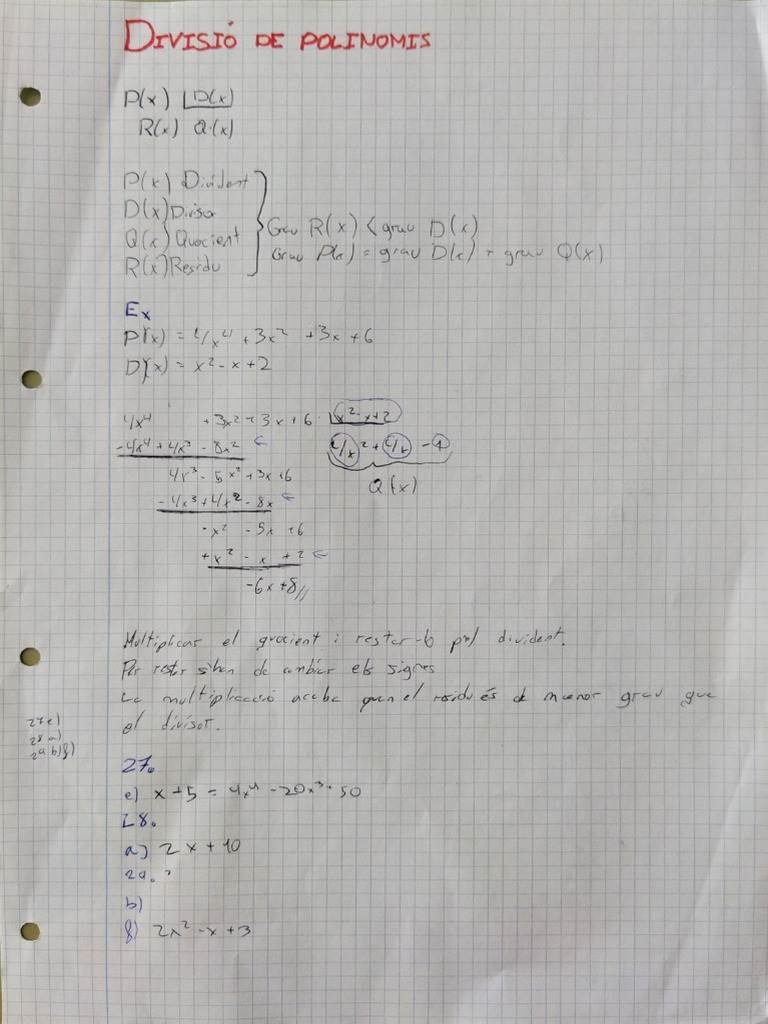 DIVISIÓ DE POLINOMIS
P(x) D(x)
R(x) Q(x)
P(x) Divident
D(x) Divisor
Q(x) Quocient
R(x) Residu
Grau R(x) < grau D(x)
Grau P(x) = grau D(x) + grau Q(x)
Ex
P(x) = 4x⁴ + 3x² + 3x + 6
D(x) = x² - x + 2
4x⁴ + 3x² + 3x + 6 x² - x + 2
- 4x⁴ + 4x³ - 8x² ← 4x² + 4x - 1
4x³ - 5x² + 3x + 6 Q(x)
- 4x³ + 4x² - 8x ←
- x² - 5x + 6
+ x² - x + 2 ←
- 6x + 8//
Multiplicar el quocient i restar-lo pel divident.
Per restar s'han de cambiar els signes
La multiplicació acaba quan el residu és de menor grau que
el divisor.
27e)
28 a)
29 b) f)
27.
e) x + 5 = 4x⁴ - 20x³ + 50
28.
a) 2x + 10
29.
b)
f) 2x² - x + 3